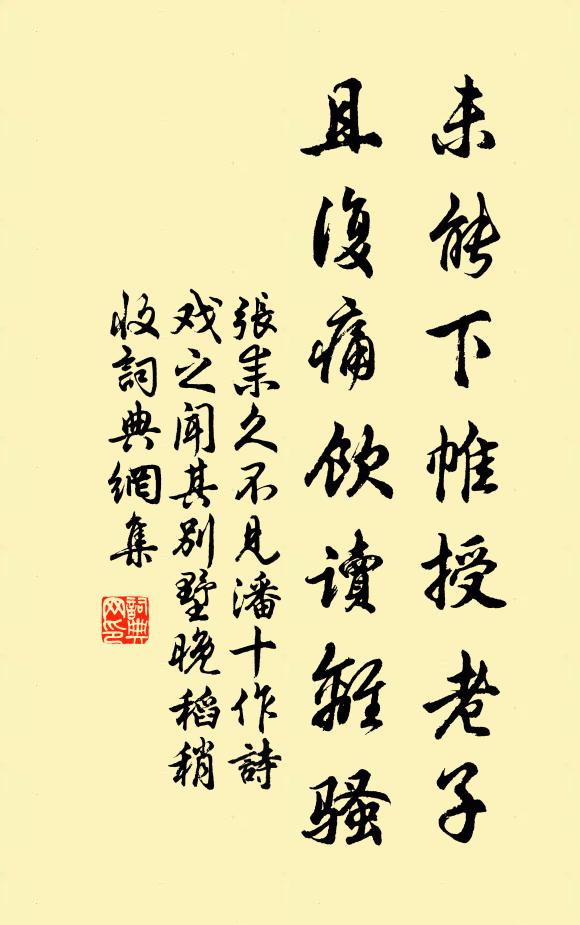 未能下帷授老子
且復痛飲讀離騷
張耒久不見潘十作詩
戏之聞其別墅晚稻稍
收詞典網集
詞典
网印